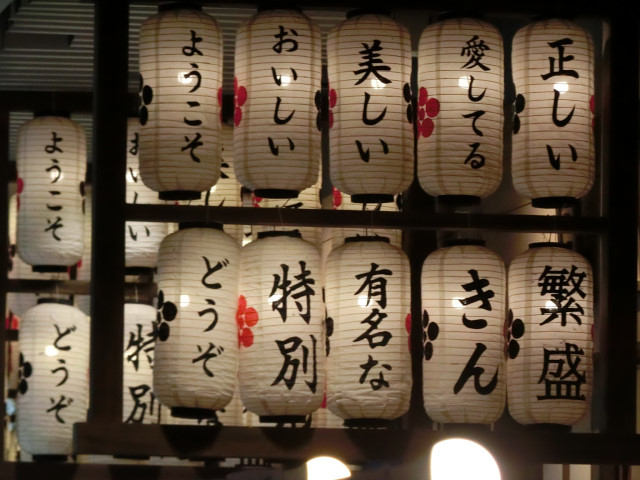 ようこそ
おいしい
美しい
愛してる
正しい
ようこそ
しい
どうぞ
特別
有名な
きん
繁盛
どうぞ
特別